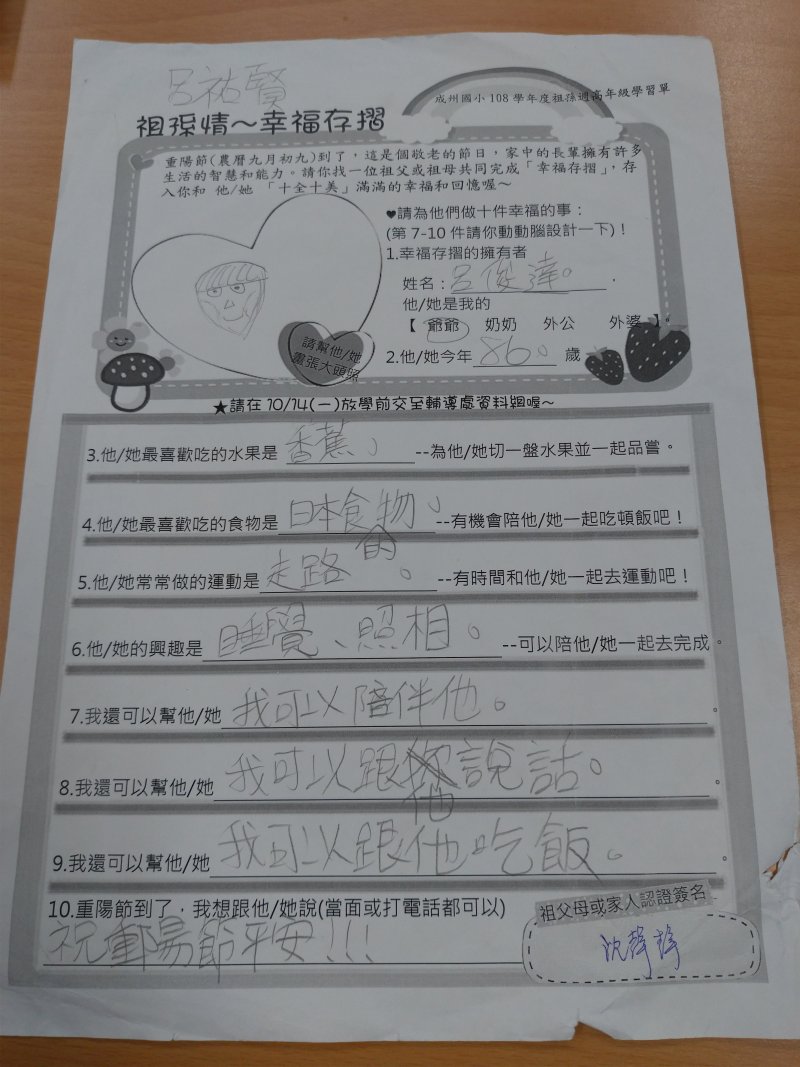 呂祐賢
成州國小 108 學年度祖孫週高年級學習單
祖孫情～幸福存摺
重陽節(農曆九月初九)到了，這是個敬老的節日，家中的長輩擁有許多
生活的智慧和能力。請你找一位祖父或祖母共同完成「幸福存摺」，存
入你和 他/她 「十全十美」滿滿的幸福和回憶喔～
♥請為他們做十件幸福的事：
(第 7-10 件請你動動腦設計一下)！
1.幸福存摺的擁有者
姓名：呂俊達。
他/她是我的
【 爺爺 奶奶 外公 外婆 】。
請幫他/她
畫張大頭照
2.他/她今年 86。 歲
★請在 10/14(一)放學前交至輔導處資料組喔~
3.他/她最喜歡吃的水果是 香蕉、--為他/她切一盤水果並一起品嘗。
4.他/她最喜歡吃的食物是 日本食物。--有機會陪他/她一起吃頓飯吧！
的
5.他/她常常做的運動是 走路。--有時間和他/她一起去運動吧！
6.他/她的興趣是 睡覺、照相。--可以陪他/她一起去完成。
7.我還可以幫他/她 我可以陪伴他。。
8.我還可以幫他/她 我可以跟他說話。。
9.我還可以幫他/她 我可以跟他吃飯。。
10.重陽節到了，我想跟他/她說(當面或打電話都可以)
祝重陽節平安!!!
祖父母或家人認證簽名